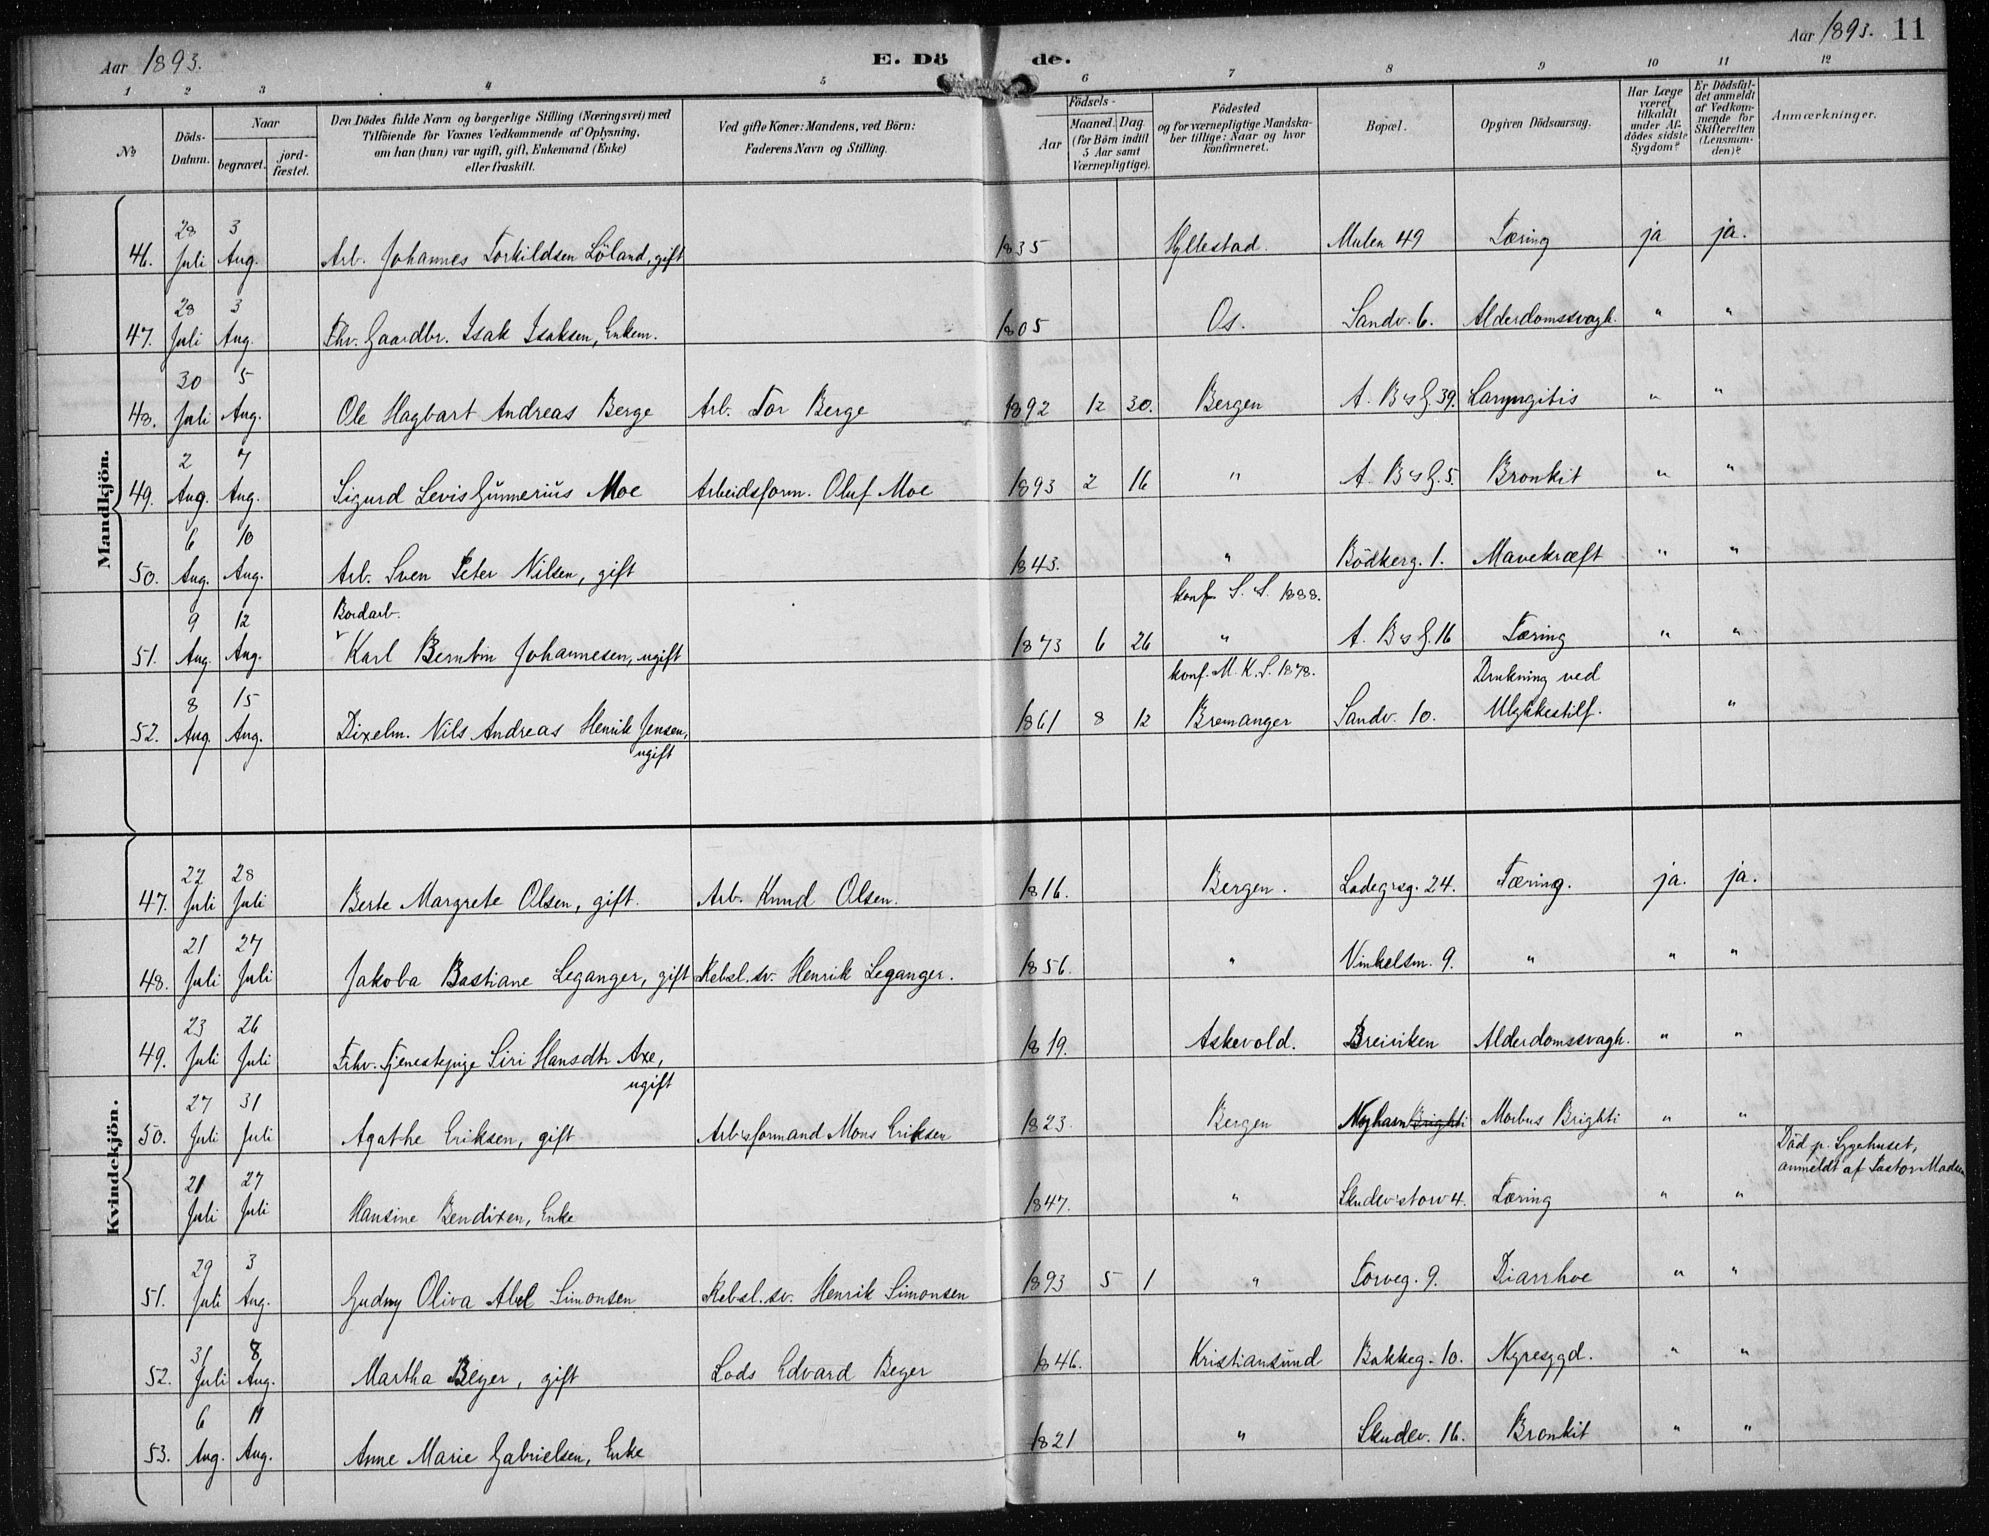 Aar 1893. E. Dö de. Aar 1893. 11
1 2 3 4 5 6 7 8 9 10 11 12
No
Döds-Datum.
Naar begravet. jordfæstet.
Den Dödes fulde Navn og borgerlige Stilling (Næringsvei) med Tilföiende for Voxnes Vedkommende af Oplysning, om han (hun) var ugift, gift, Enkemand (Enke) eller fraskilt.
Ved gifte Koner: Mandens, ved Börn: Faderens Navn og Stilling.
Födsels-
Aar Maaned. Dag. (for Börn indtil 5 Aar samt Værnepligtige).
Födested og for værnepligtige Mandskaber tillige: Naar og hvor konfirmeret.
Bopæl.
Opgiven Dödsaarsag.
Har Læge været tilkaldt under Afdödes sidste Sygdom?
Er Dödsfaldet anmeldt af Vedkommende for Skifteretten (Lensmanden)?
Anmærkninger.
Mandkjön.
46. 28 Juli 3 Aug. Arb. Johannes Torkildsen Löland, gift 1835 Hyllestad. Mulen 49 Tæring ja ja.
47. 28 Juli 3 Aug. Fhv. Gaardbr. Isak Isaksen, Enkem. 1805 Os. Sandv. 6. Alderdomssvagh. " "
48. 30 Juli 5 Aug. Ole Hagbart Andreas Berge Arb. Tor Berge 1892 12 30. Bergen A. B's G. 39. Laryngitis " "
49. 2 Aug. 7 Aug. Sigurd Levis Gunnerius Moe Arbeidsform. Oluf Moe 1893 2 16 " A. B's G. 5. Bronkit " "
50. 6 Aug. 10 Aug. Arb. Sven Peter Nilsen, gift 1843. " Bödkerg. 1. Mavekræft " "
51. 9 Aug. 12 Aug. Bordarb. Karl Berntin Johannesen, ugift 1873 6 26 konf. S. S. 1888. " A. B's G. 16 Tæring " "
52. 8 Aug. 15 Aug. Dixelm. Nils Andreas Henrik Jensen, ugift 1861 8 12 konf. M. K. S. 1878. Bremanger Sandv. 10. Drukning ved Ulykkestilf. "
Kvindekjön.
47. 22 Juli 28 Juli Berte Margrete Olsen, gift. Arb. Knud Olsen. 1816. Bergen. Ladegrsg. 24. Tæring. ja. ja.
48. 21 Juli 27 Juli Jakoba Bastiane Leganger, gift Rebsl.sv. Henrik Leganger. 1856. " Vinkelsm. 9. " " "
49. 23 Juli 26 Juli Fhv. Tjenestepige Siri Hansdtr Axe, ugift 1819. Askevold. Breiviken Alderdomssvagh. " "
50. 27 Juli 31 Juli Agathe Eriksen, gift Arb'sformand Mons Eriksen 1823. Bergen Nyhavn Brighti Morbus Brighti " "
21 Juli 27 Juli Hansine Bendixen, Enke 1847. " Skudev'storv 4. Tæring " " Död p. Sygehuset, anmeldt af Pastor Madsen
51. 29 Juli 3 Aug. Gudny Oliva Abel Simonsen Rebsl.sv. Henrik Simonsen 1893 5 1 " Torveg. 9. Diarrhoe " "
52. 31 Juli 8 Aug. Martha Beyer, gift Lods Edvard Beyer 1846. Kristiansund Bakkeg. 10. Nyresygd. " "
53. 6 Aug. 11 Aug. Anne Marie Gabrielsen, Enke 1821 " Skudev. 16. Bronkit " "